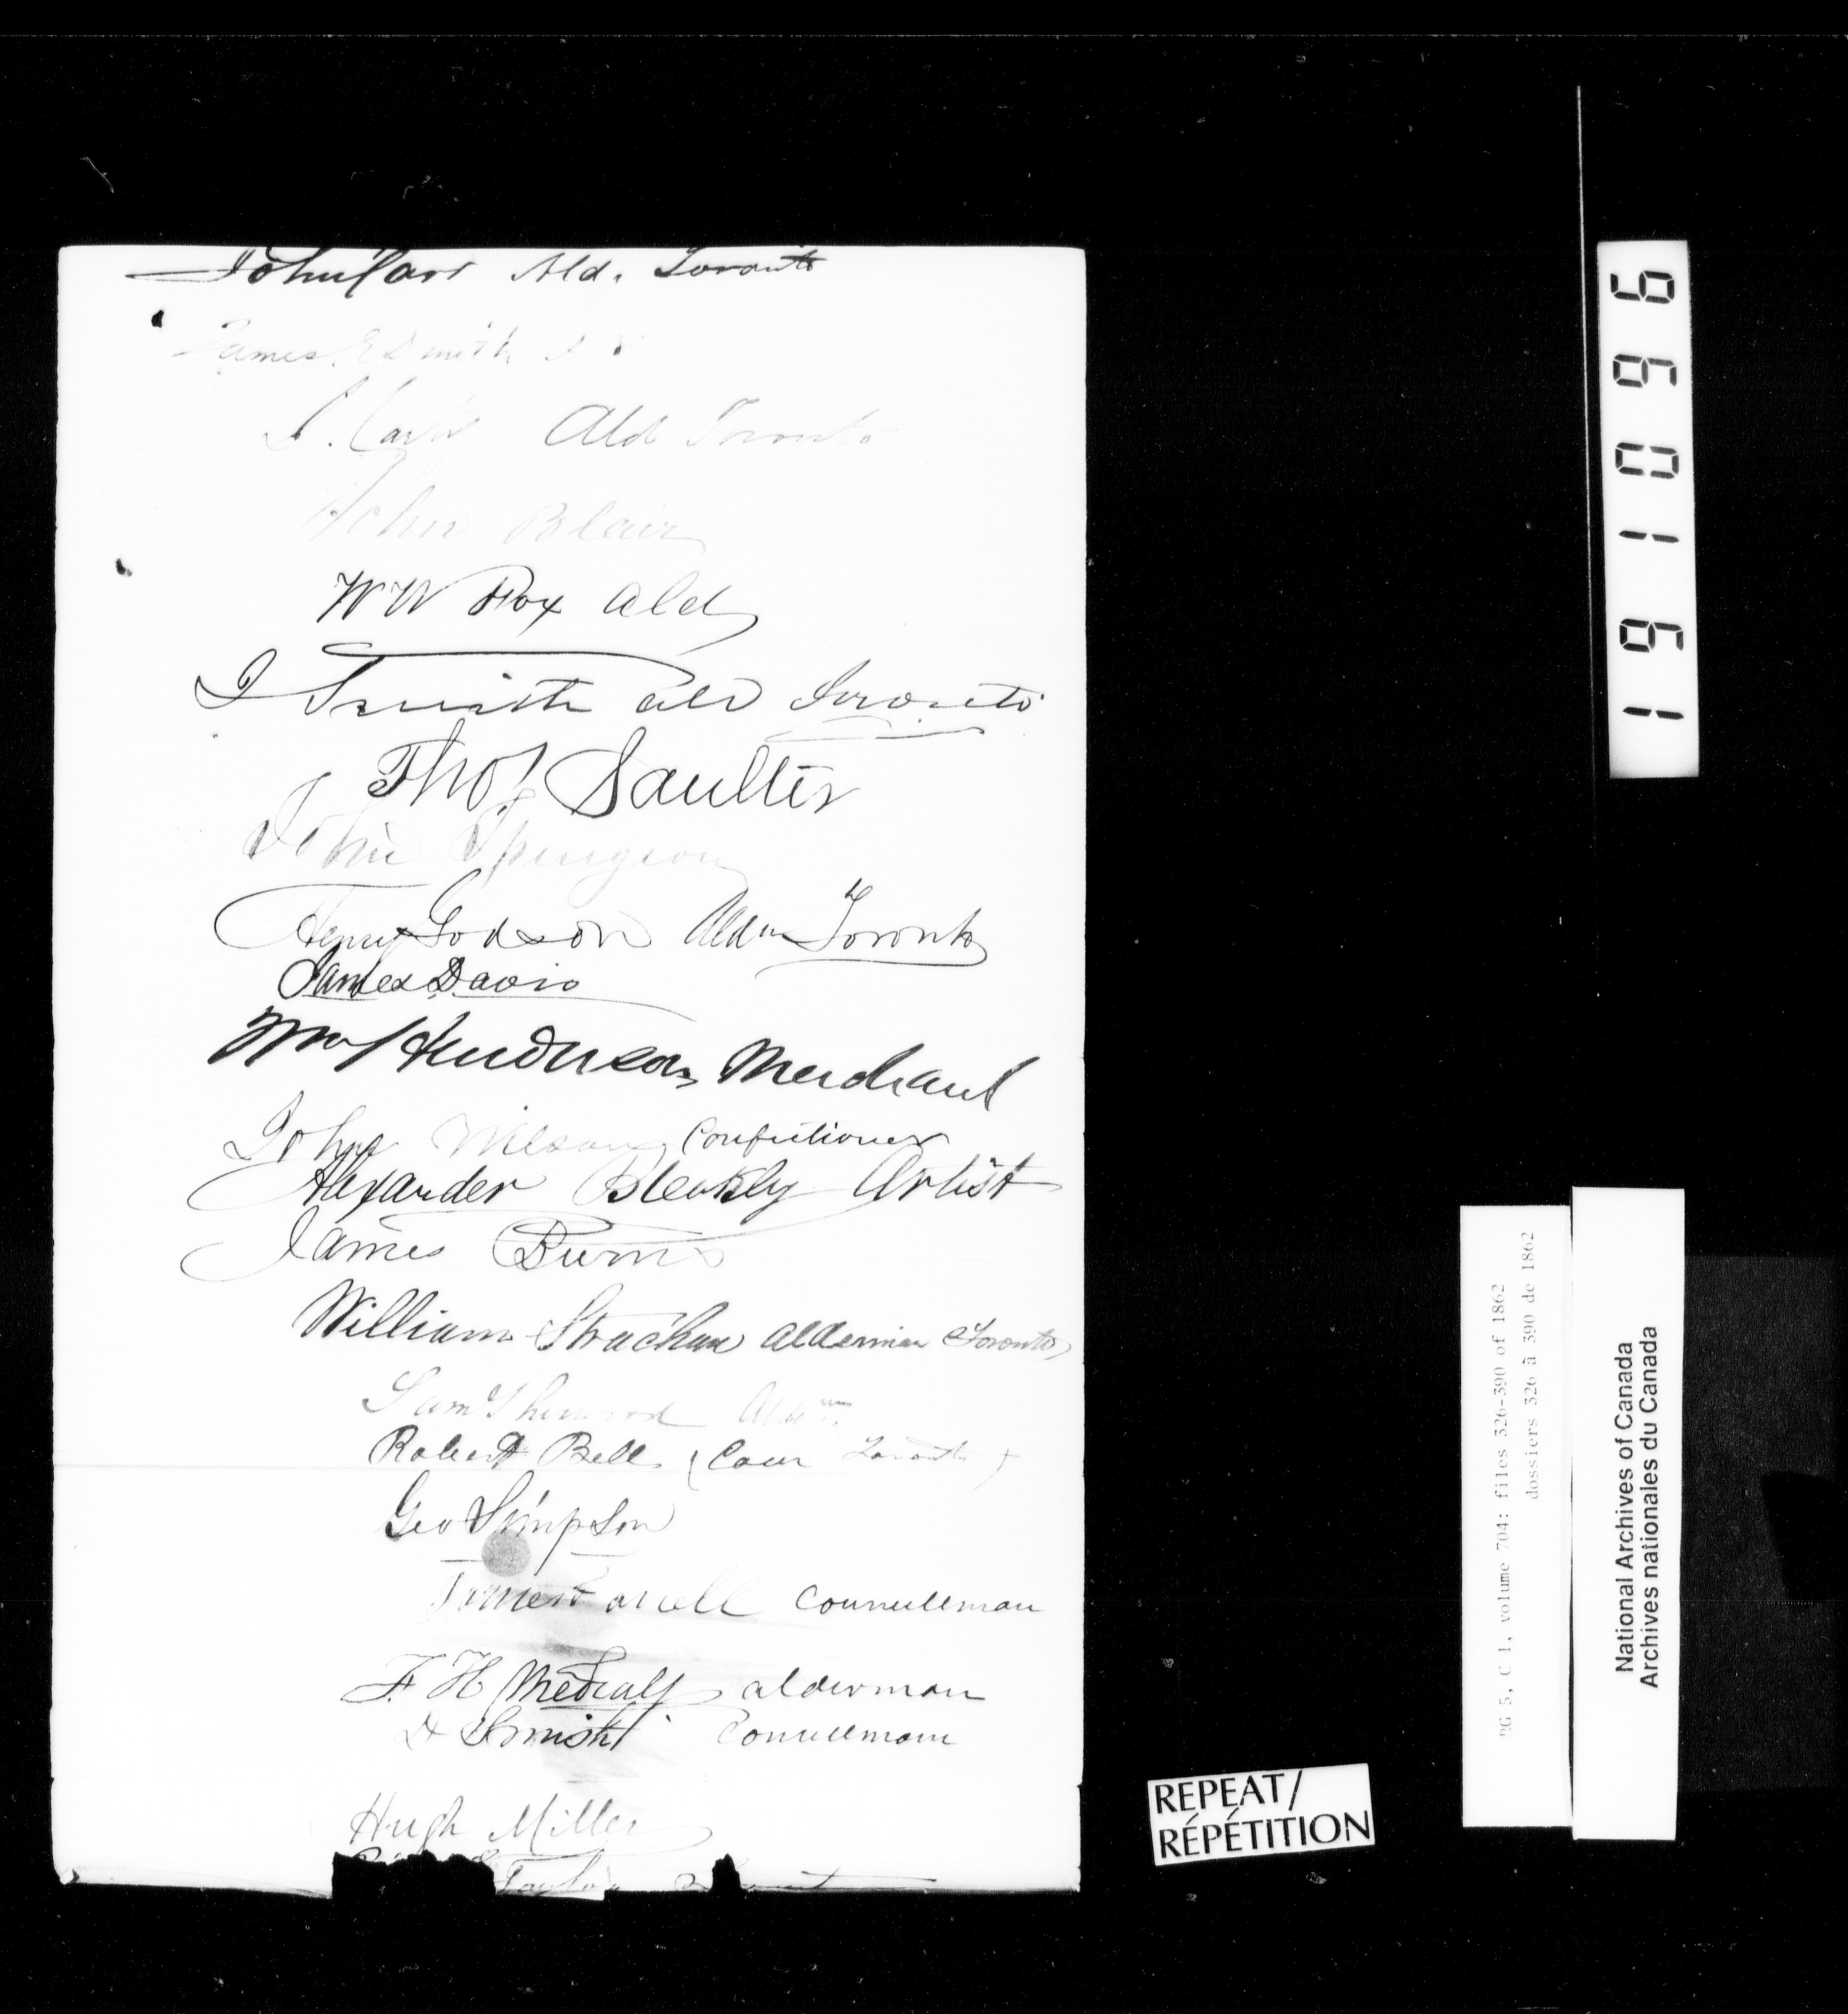 John Carr Ald. Toronto
James E Smith J P
J. Carty Ald Toronto
John Blair
W W Fox Ald
J Smith ald Toronto
Thos Saulter
John Spurgeon
Henry Godson Aldn Toronto
James Davis
Wm Henderson Merchant
John Wilson Confectioner
Alexander Bleakly Artist
James Burns
William Strachan Alderman Toronto
Sam Sherwood Aldm
Robert Bell (Coun Toronto)
Geo Simpson
James Farrell Councilman
F. H Medcalf alderman
D Smith Councilman
Hugh Miller
Taylor
1 9 1 0 9 6
RG 5, C 1, volume 704: files 326-390 of 1862
dossiers 326 à 390 de 1862
National Archives of Canada
Archives nationales du Canada
REPEAT/
RÉPÉTITION